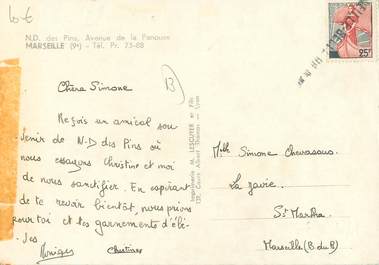 N.D. des Pins, Avenue de la Panouse
MARSEILLE (9e) - Tél. Pr. 73-88
25F
Chère Simone
Reçois un amical sou
venir de N-D des Pins où
nous essayons Christine et moi
de nous sanctifier. En espérant
de te revoir bientôt, nous prions
pour toi et tes garnements d'élè-
ves.
Monique Christine
Imprimerie M. LESCUYER et Fils
129, Cours Albert Thomas - Lyon
Mlle Simone
La
St Marthe
Marseille (B du R)